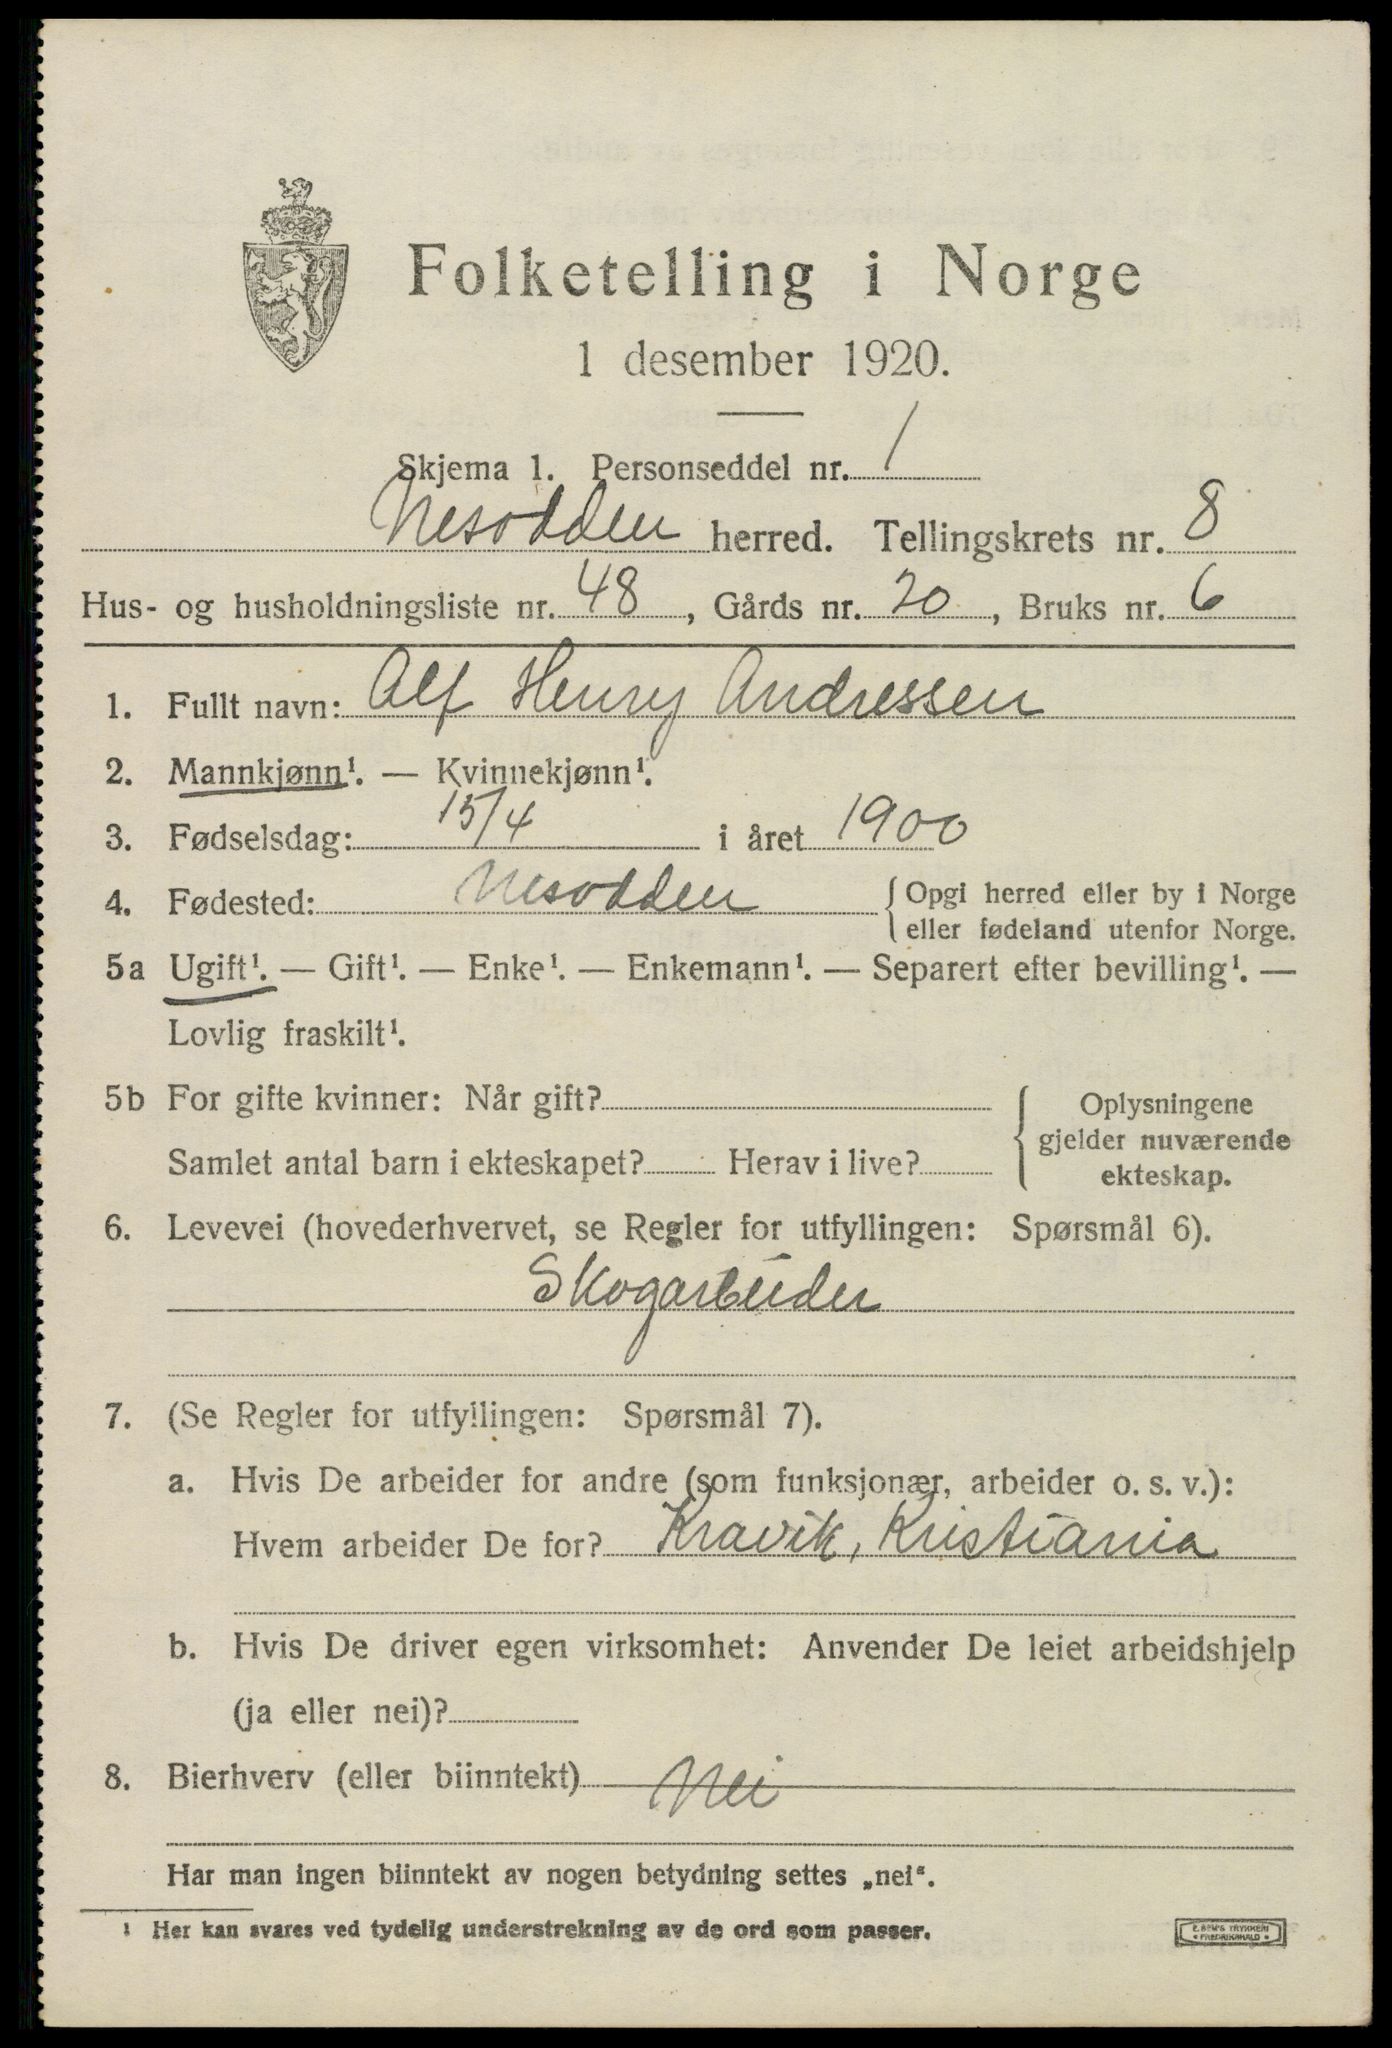 Folketelling i Norge
1 desember 1920.
Skjema 1. Personseddel nr. 1
Nesodden herred. Tellingskrets nr. 8
Hus- og husholdningsliste nr. 48, Gårds nr. 20, Bruks nr. 6
1. Fullt navn: Alf Henry Andressen
2. Mannkjønn¹. — Kvinnekjønn¹.
3. Fødselsdag: 15/4 i året 1900
4. Fødested: Nesodden { Opgi herred eller by i Norge
eller fødeland utenfor Norge.
5a Ugift¹. — Gift¹. — Enke¹. — Enkemann¹. — Separert efter bevilling¹. —
Lovlig fraskilt¹.
5b For gifte kvinner: Når gift?
Samlet antal barn i ekteskapet? Herav i live?
{ Oplysningene
gjelder nuværende
ekteskap.
6. Levevei (hovederhvervet, se Regler for utfyllingen: Spørsmål 6).
Skogarbeider
7. (Se Regler for utfyllingen: Spørsmål 7).
a. Hvis De arbeider for andre (som funksjonær, arbeider o. s. v.):
Hvem arbeider De for? Kravik, Kristiania
b. Hvis De driver egen virksomhet: Anvender De leiet arbeidshjelp
(ja eller nei)?
8. Bierhverv (eller biinntekt) Nei
Har man ingen biinntekt av nogen betydning settes „nei“.
¹ Her kan svares ved tydelig understrekning av de ord som passer.
E. SEM'S TRYKKERI
• FREDRIKSHALD •